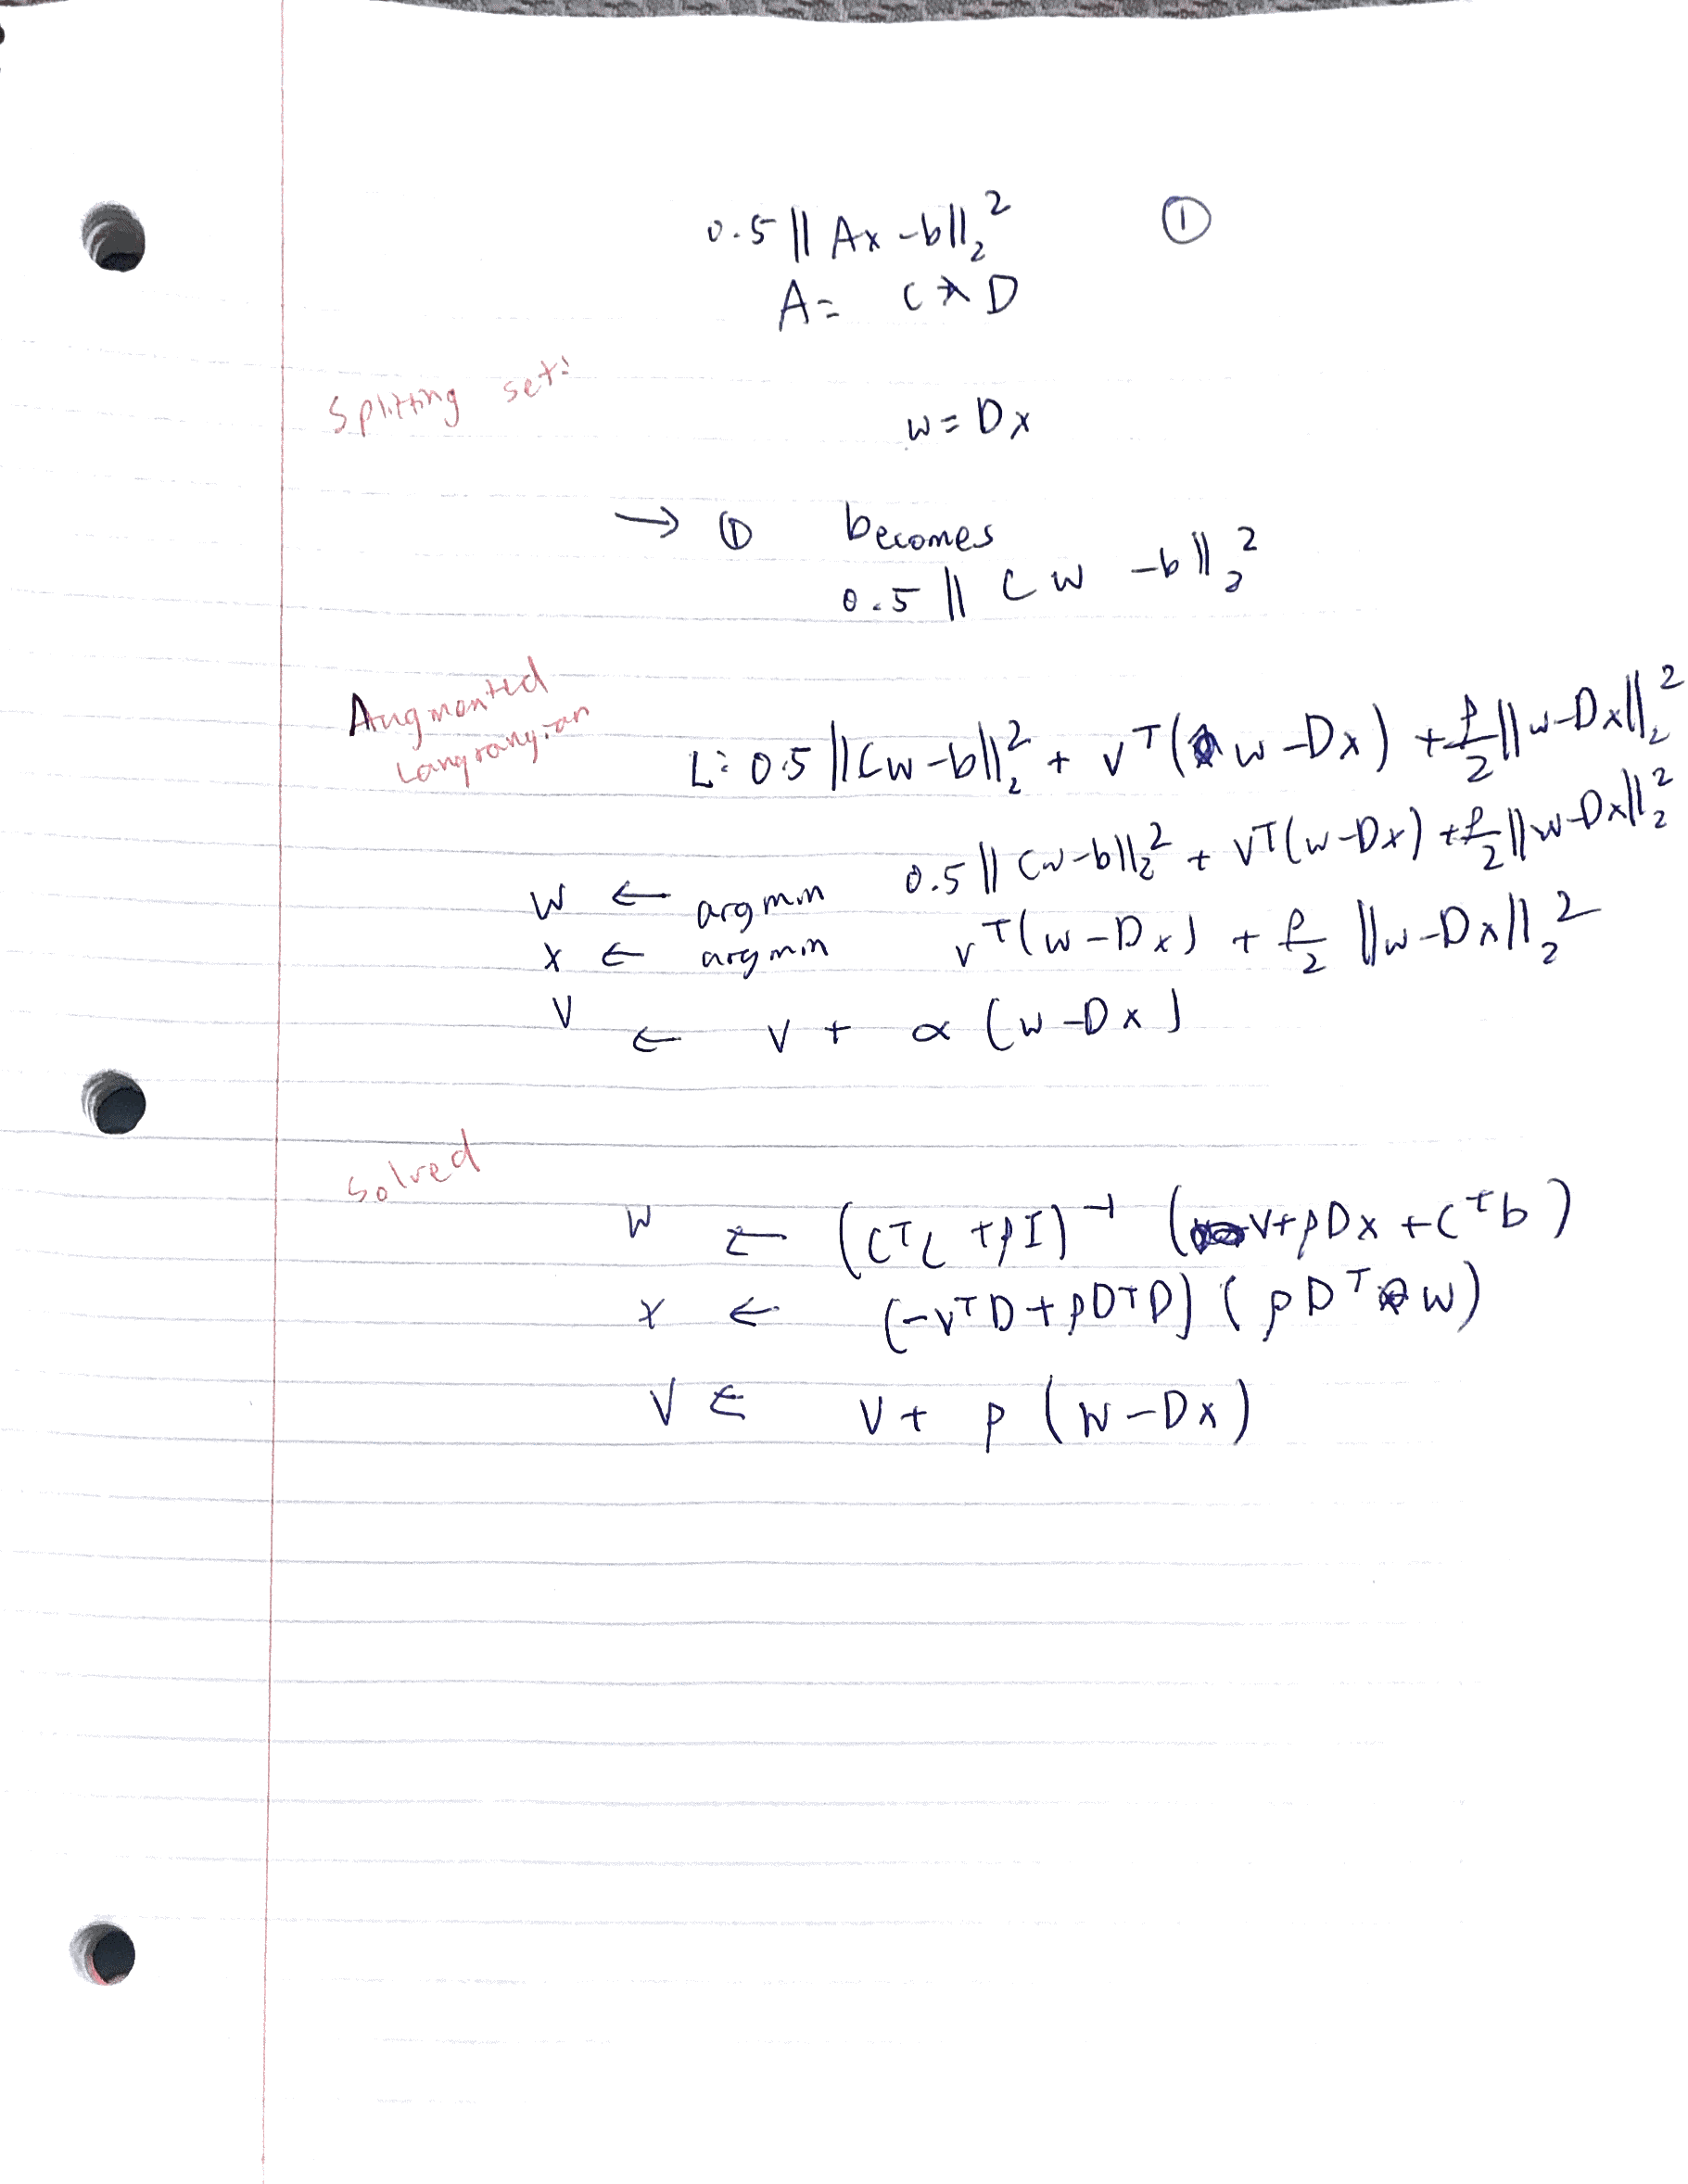 0.5 || Ax - b ||₂² ①
A = C * D
Splitting set:
w = Dx
→ ① becomes
0.5 || Cw - b ||₂²
Augmented
Langrangian
L: 0.5 || Cw - b ||₂² + vᵀ( w - Dx ) + ρ/2 || w - Dx ||₂²
w ← argmin 0.5 || Cw - b ||₂² + vᵀ( w - Dx ) + ρ/2 || w - Dx ||₂²
x ← argmin vᵀ( w - Dx ) + ρ/2 || w - Dx ||₂²
v ← v + α ( w - Dx )
Solved
w ← ( CᵀC + ρI )⁻¹ ( v + ρDx + Cᵀb )
x ← ( -vᵀD + ρDᵀD ) ( ρDᵀ w )
v ← v + ρ ( w - Dx )